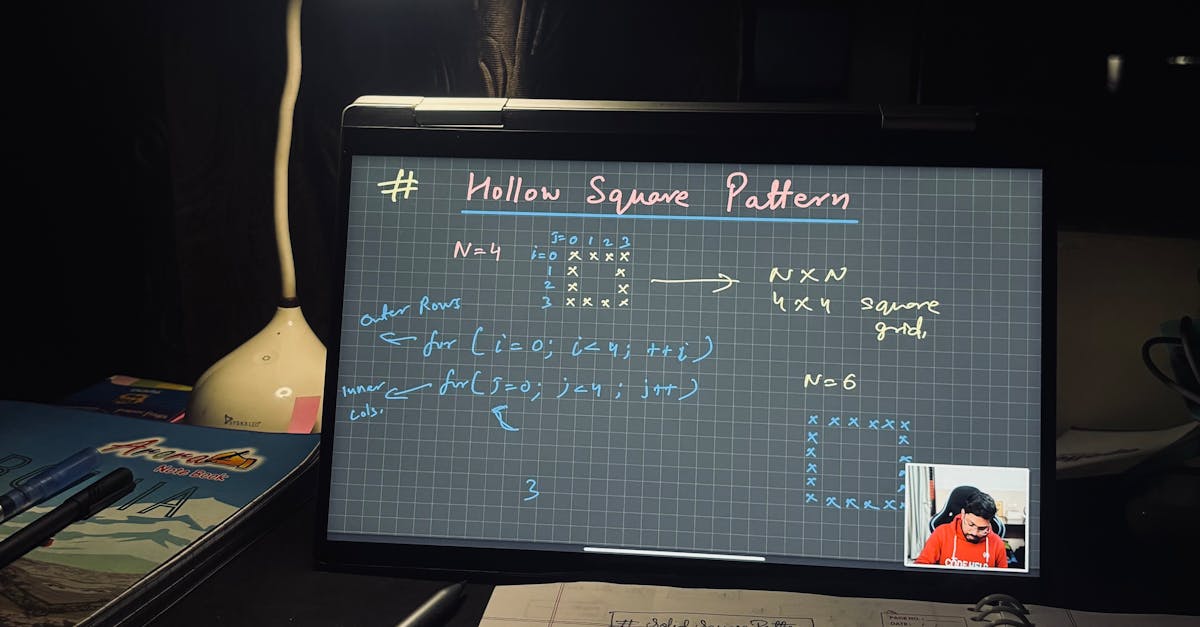 # Hollow Square Pattern
N=4
J=0 1 2 3
i=0 x x x x
1 x x
2 x x
3 x x x x
N x N
4 x 4 square
grid,
outer Rows
for ( i=0; i<4; ++i )
Inner
cols.
for( J=0; j<4; j++ )
{
3
N=6
x x x x x x
x x
x x
x x
x x
x x x x x x
CODE HELP
Note Book
PAGE NO.
DATE:
# Solid Square Patte